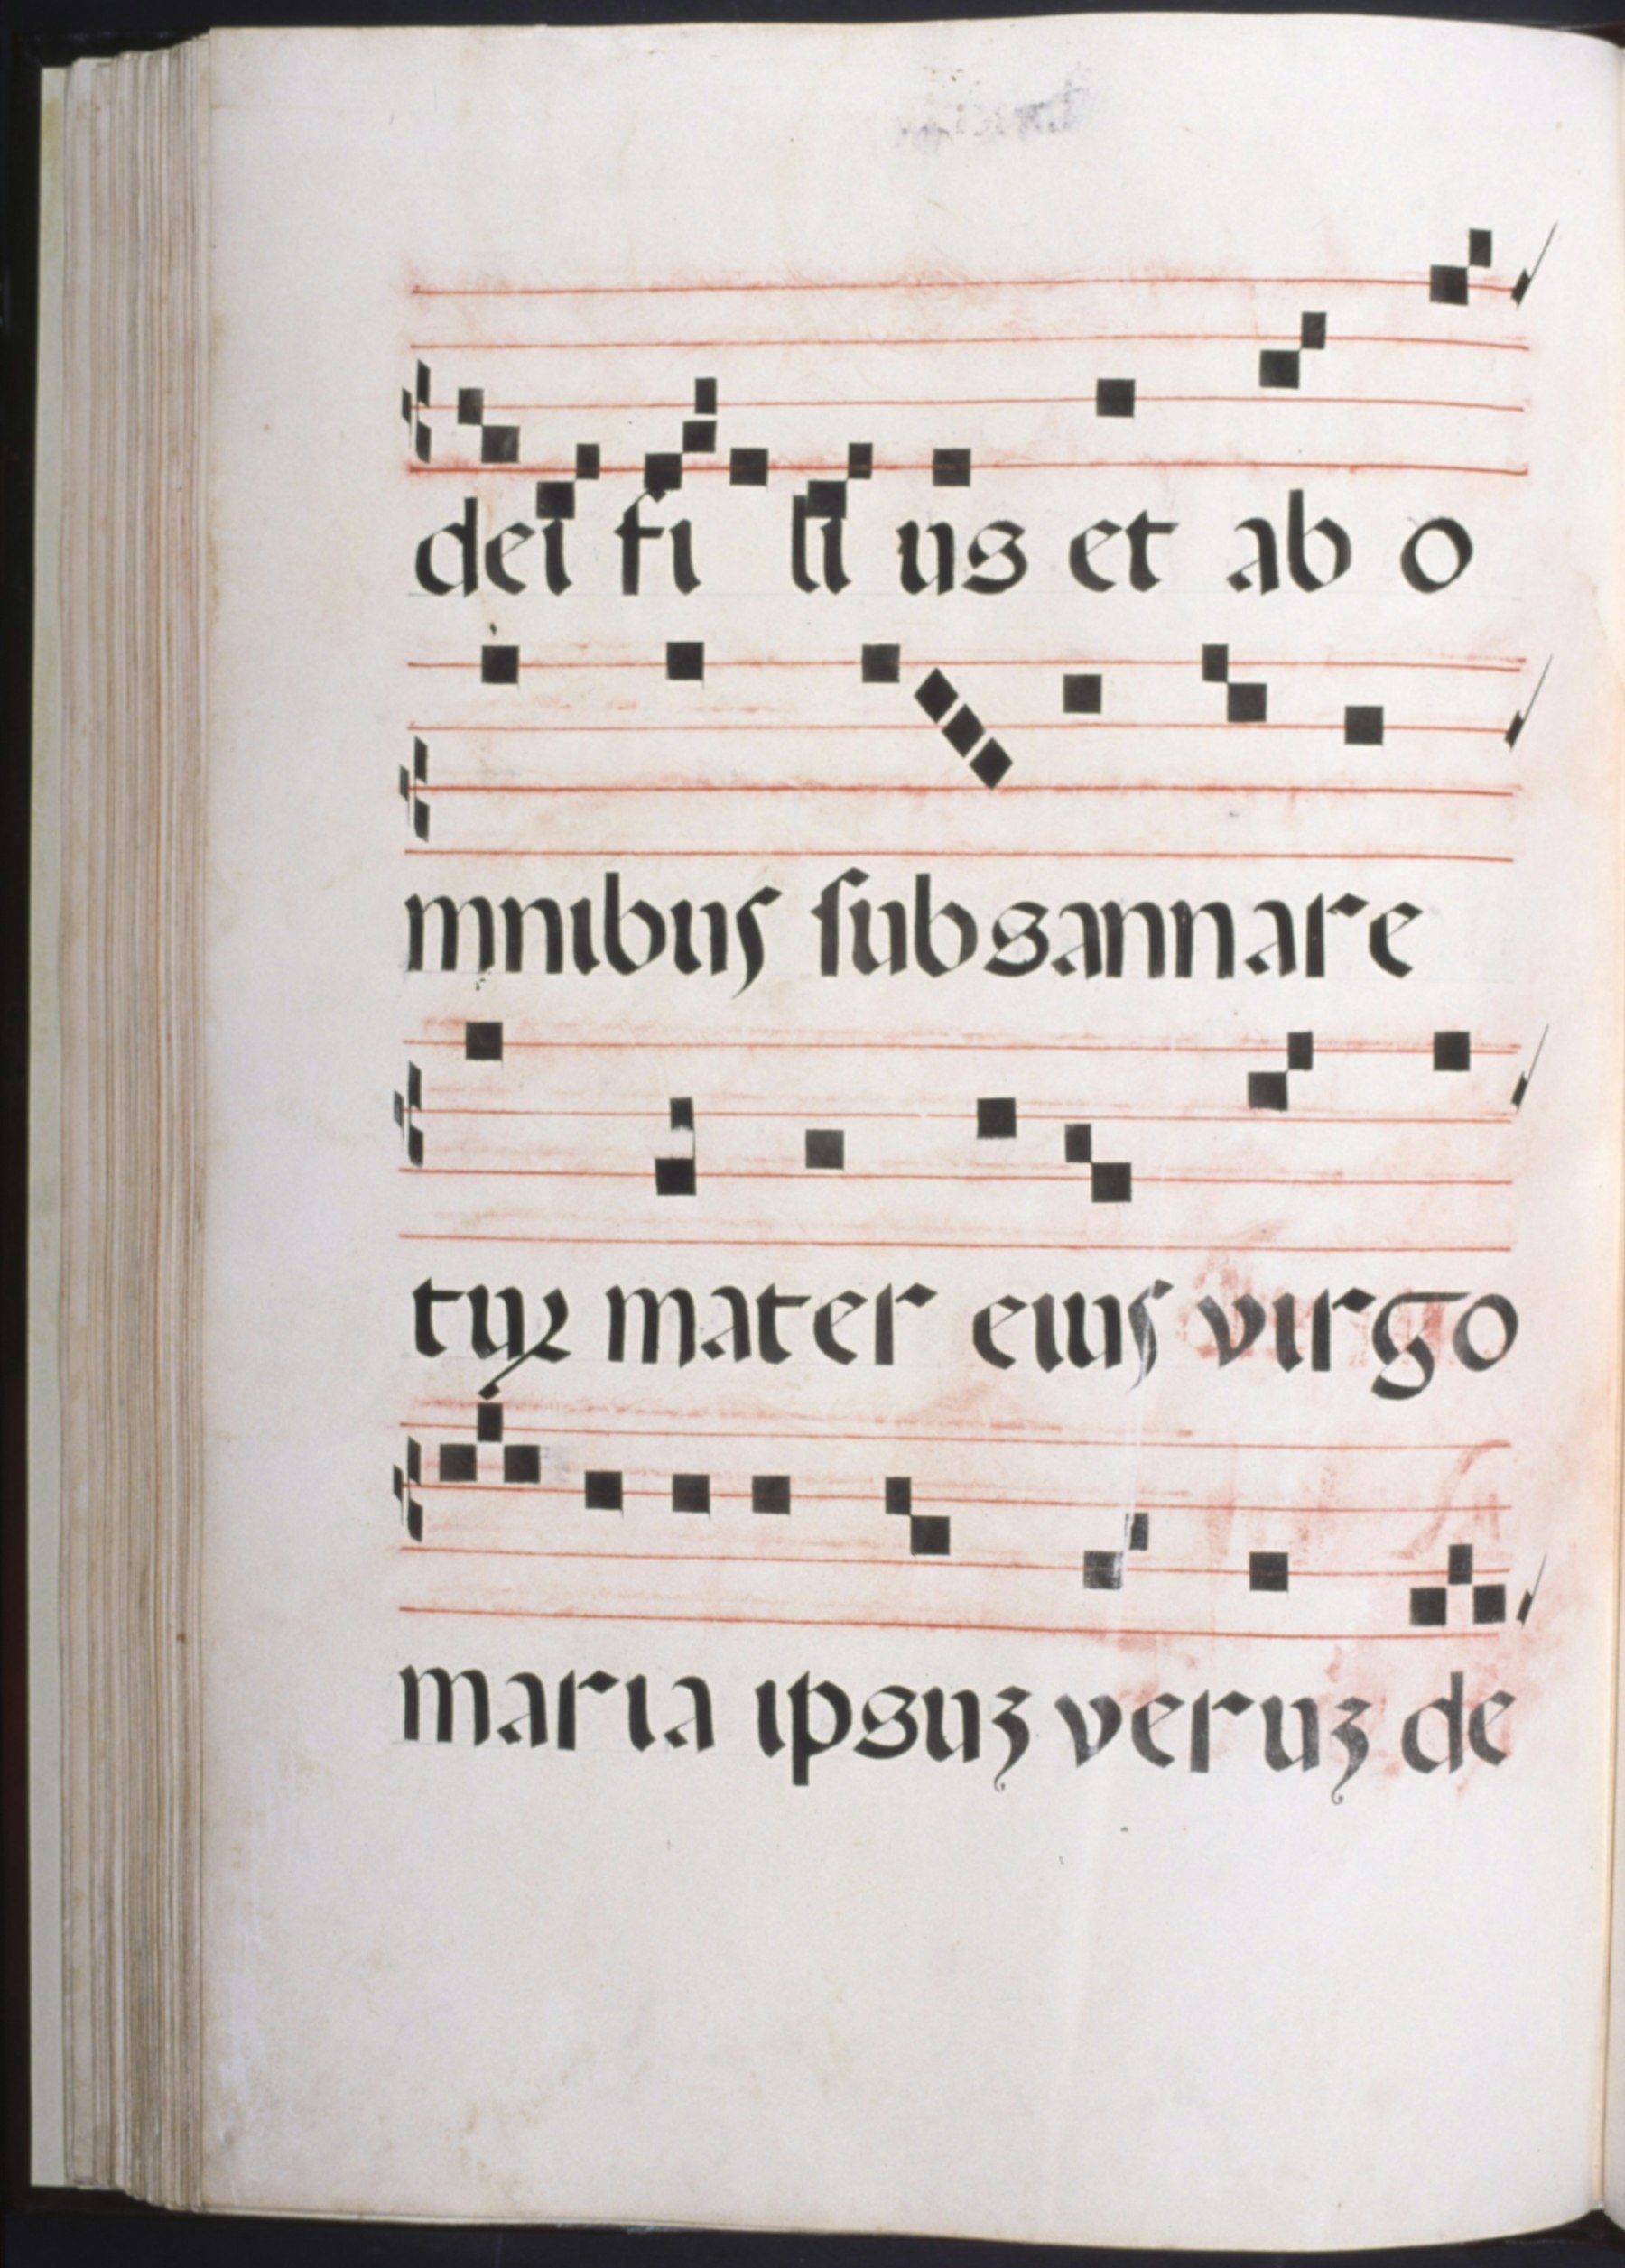 dei fi li us et ab o
mnibus ſubsannare
tuꝝ mater eius virgo
maria ipsuꝫ veruꝫ de